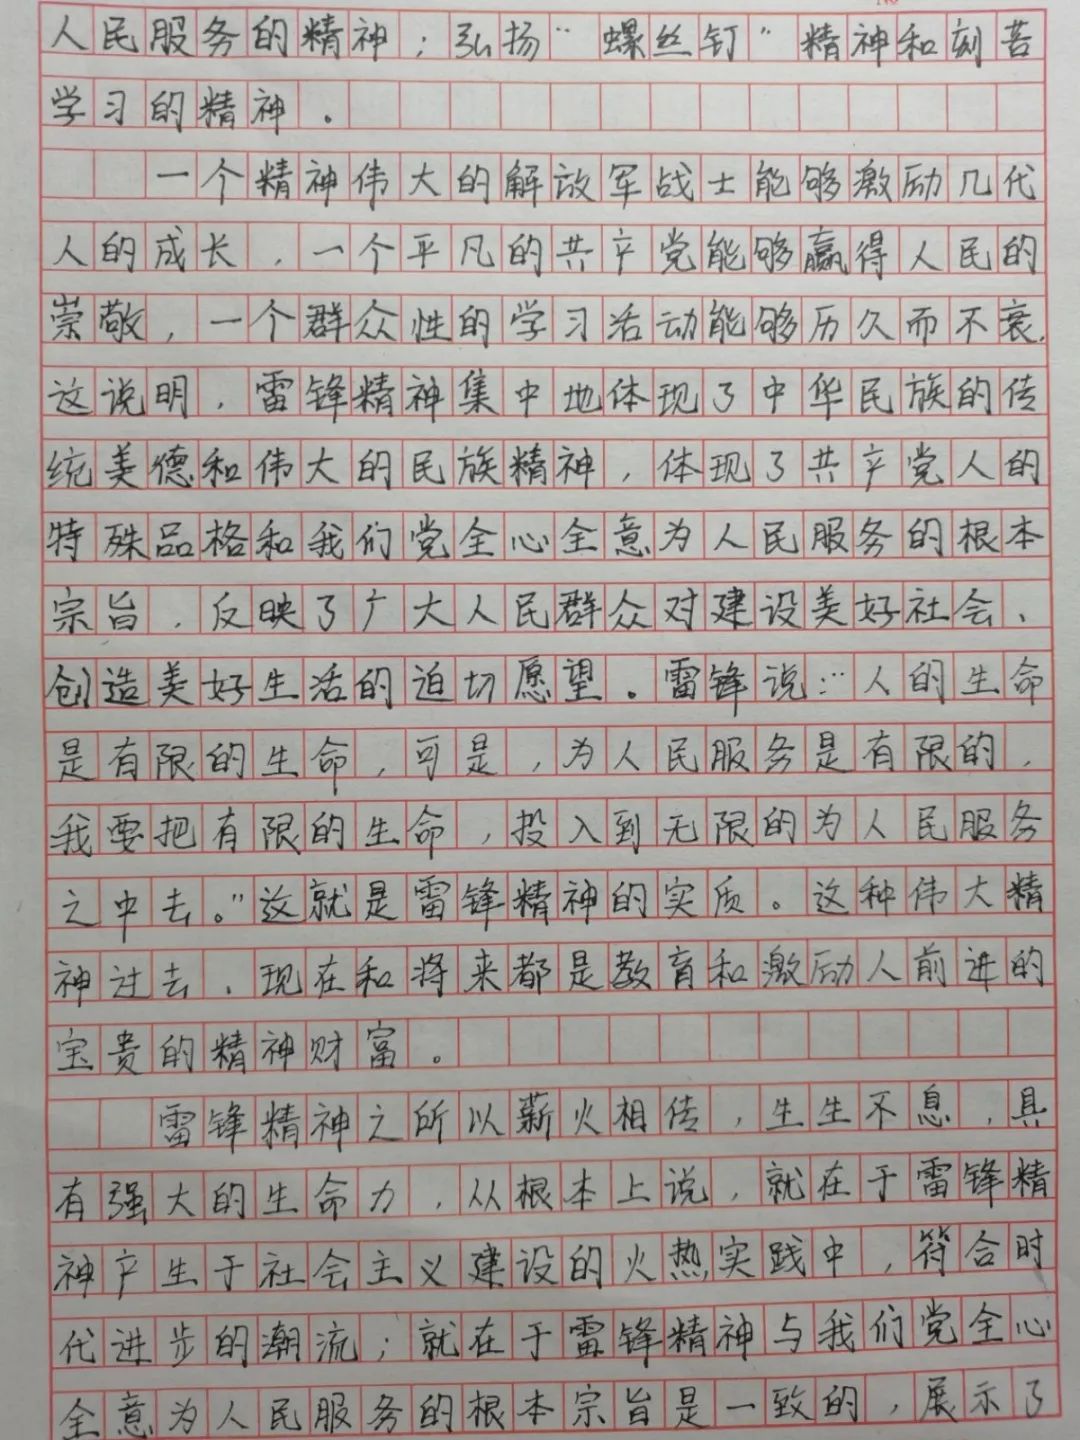 人民服务的精神；弘扬“螺丝钉”精神和刻苦
学习的精神。
一个精神伟大的解放军战士能够激励几代
人的成长，一个平凡的共产党能够赢得人民的
崇敬，一个群众性的学习活动能够历久而不衰，
这说明，雷锋精神集中地体现了中华民族的传
统美德和伟大的民族精神，体现了共产党人的
特殊品格和我们党全心全意为人民服务的根本
宗旨，反映了广大人民群众对建设美好社会、
创造美好生活的迫切愿望。雷锋说：“人的生命
是有限的生命，可是，为人民服务是有限的，
我要把有限的生命，投入到无限的为人民服务
之中去。”这就是雷锋精神的实质。这种伟大精
神过去、现在和将来都是教育和激励人前进的
宝贵的精神财富。
雷锋精神之所以薪火相传，生生不息，具
有强大的生命力，从根本上说，就在于雷锋精
神产生于社会主义建设的火热实践中，符合时
代进步的潮流；就在于雷锋精神与我们党全心
全意为人民服务的根本宗旨是一致的，展示了